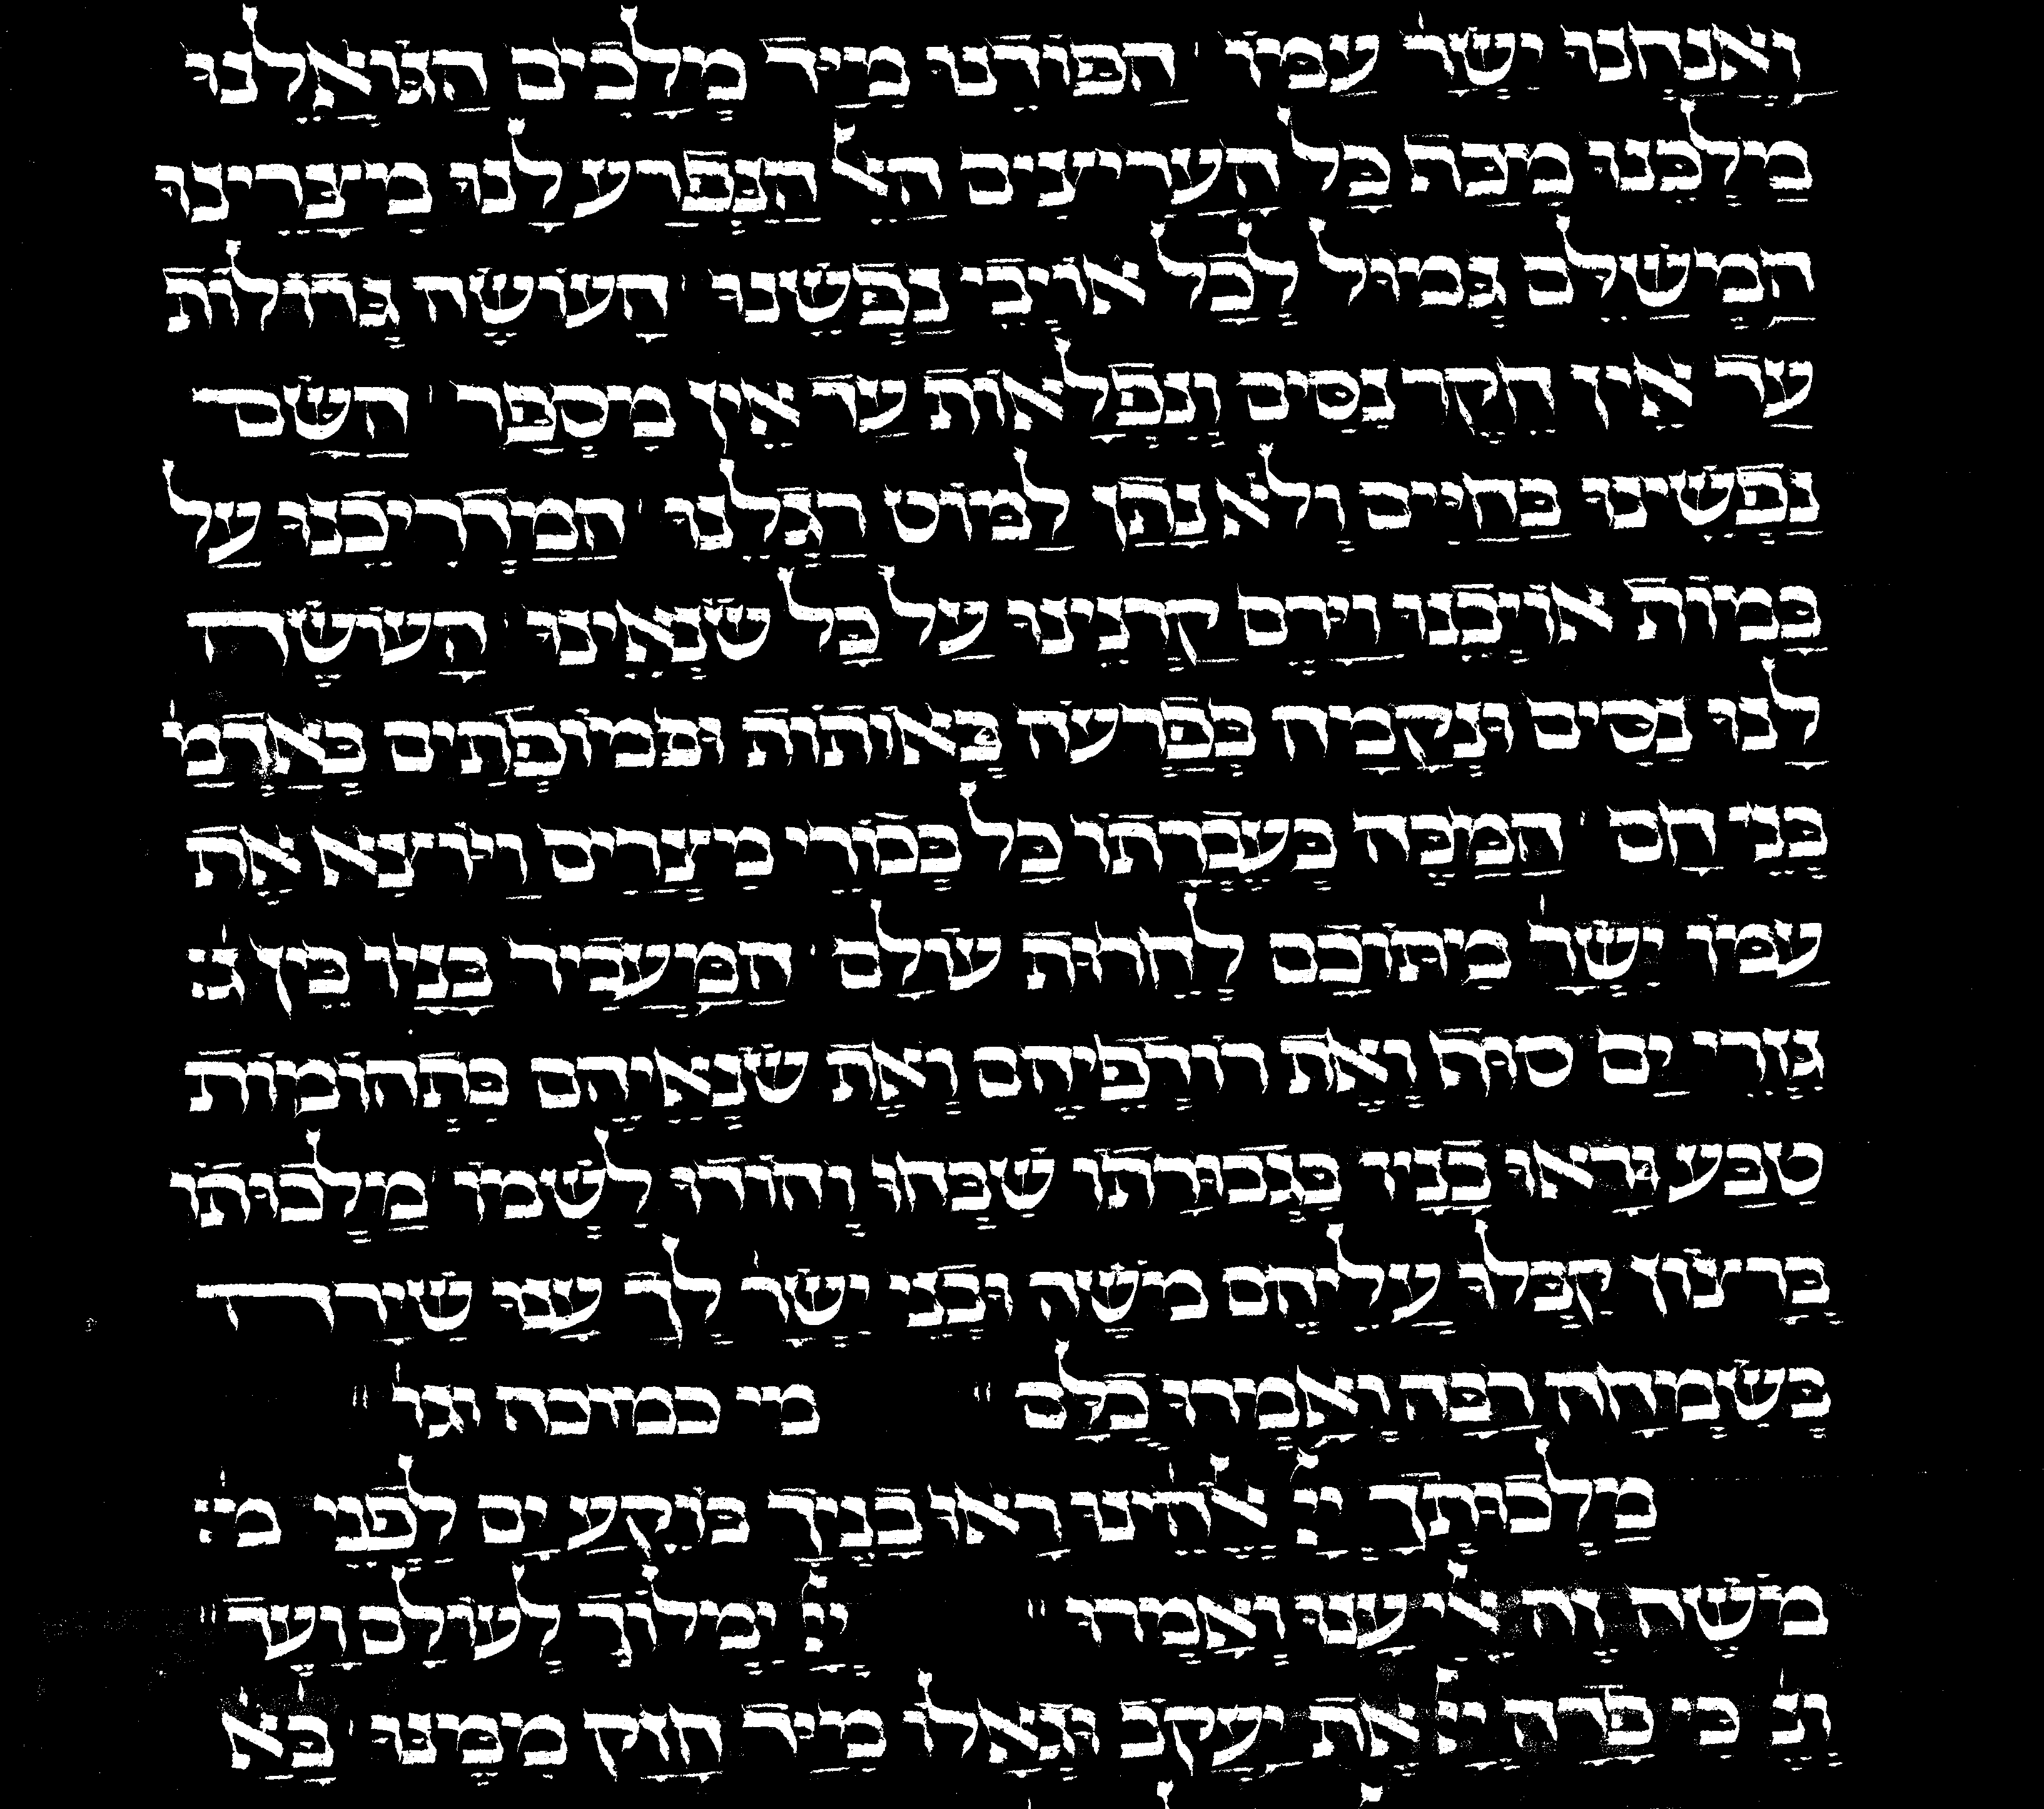 וַאֲנַחְנוּ יִשְׂרָ׳ עַמּוֹ ׳ הַפּוֹדֵנוּ מִיַּד מְלָכִים הַגּוֹאֲלֵנוּ
מַלְכֵּנוּ מִכַּף כָּל הֶעָרִיצִים הָאֵ֗ל הַנִּפְרָע לָנוּ מִצָּרֵינוּ
הַמְשַׁלֵּם גְּמוּל לְכָל אוֹיְבֵי נַפְשֵׁנוּ ׳ הָעוֹשֶׂה גְּדוֹלוֹת
עַד אֵין חֵקֶר נִסִּים וְנִפְלָאוֹת עַד אֵין מִסְפָּר ׳ הַשָּׂם
נַפְשֵׁינוּ בַּחַיִּים וְלֹא נָתַן לַמּוֹט רַגְלֵנוּ ׳ הַמַּדְרִיכֵנוּ עַל
בָּמוֹת אוֹיְבֵנוּ וַיָּרֶם קַרְנֵינוּ עַל כָּל שׂנְאֵינוּ ׳ הָעוֹשֶׂה
לָנוּ נִסִּים וּנְקָמָה בְּפַרְעֹה בְּאוֹתוֹת וּבְמוֹפְתִים בְּאַדְמַ׳
בְּנֵי חָם ׳ הַמַּכֶּה בְּעֶבְרָתוֹ כָּל בְּכוֹרֵי מִצְרַיִם וַיּוֹצֵא אֶת
עַמּוֹ יִשְׂרָ׳ מִתּוֹכָם לְחֵרוּת עוֹלָם ׳ הַמַּעֲבִיר בָּנָיו בֵּין גִ׳
גִּזְרֵי יַם סוּף וְאֶת רוֹדְפֵיהֶם וְאֶת שׂנְאֵיהֶם בִּתְהוֹמוֹת
טִבַּע וְרָאוּ בָנָיו בִּגְבוּרָתוֹ שִׁבְּחוּ וְהוֹדוּ לִשְׁמוֹ ׳ מַלְכוּתוֹ
בְּרָצוֹן קִבְּלוּ עֲלֵיהֶם מֹשֶׁה וּבְנֵי יִשְׂרָ׳ לְךָ עָנוּ שִׁירָה
בְּשִׂמְחָה רַבָּה וְאָמְרוּ כֻלָּם ״ מי כמוכה וגו׳ ״
מַלְכוּתְךָ יְיָ אֱלֹהֵינוּ רָאוּ בָנֶיךָ בּוֹקֵעַ יָם לִפְנֵי מ׳
מֹשֶׁה זֶה אֵלִי עָנוּ וְאָמְרוּ ״ יְיָ יִמְלוֹךְ לְעוֹלָם וָעֶד ״
וְנֶ׳ כִּי פָדָה יְיָ אֶת יַעֲקֹב וּגְאָלוֹ מִיַּד חָזָק מִמֶּנּוּ ׳ בָּ׳ אַ׳